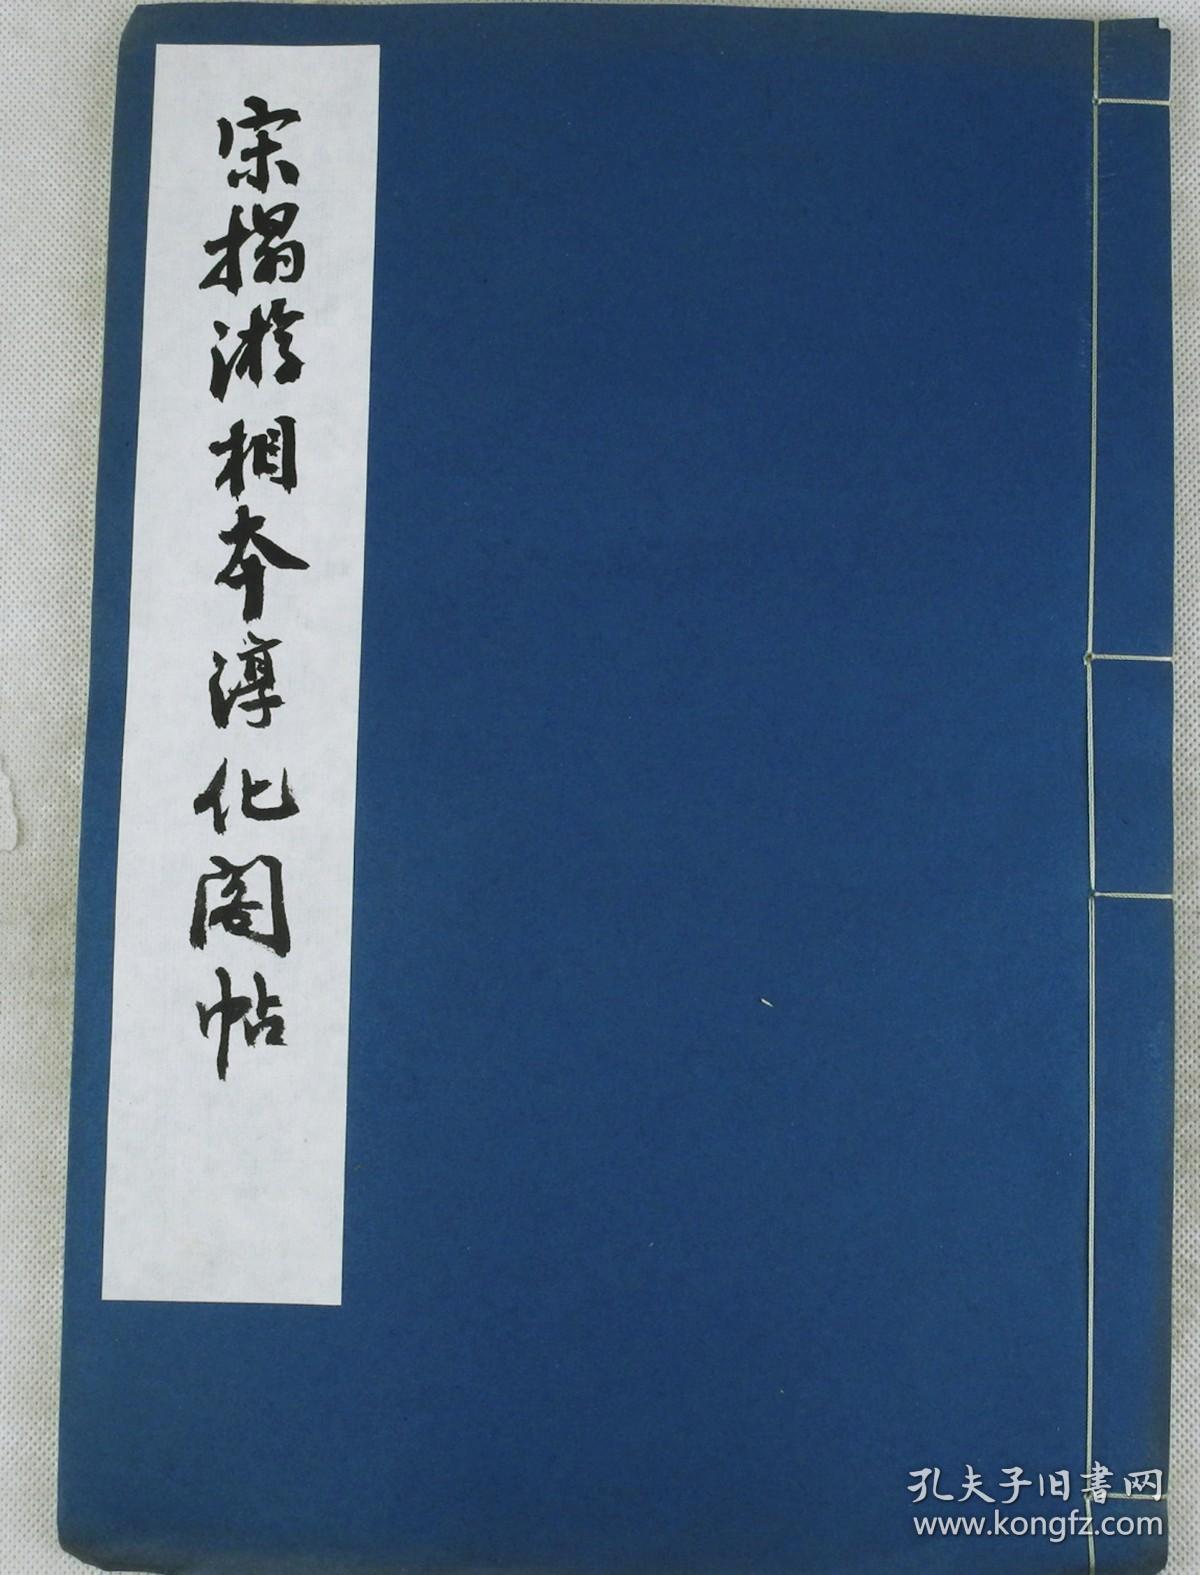 宋搨游相本淳化阁帖
孔夫子旧书网
www.kongfz.com